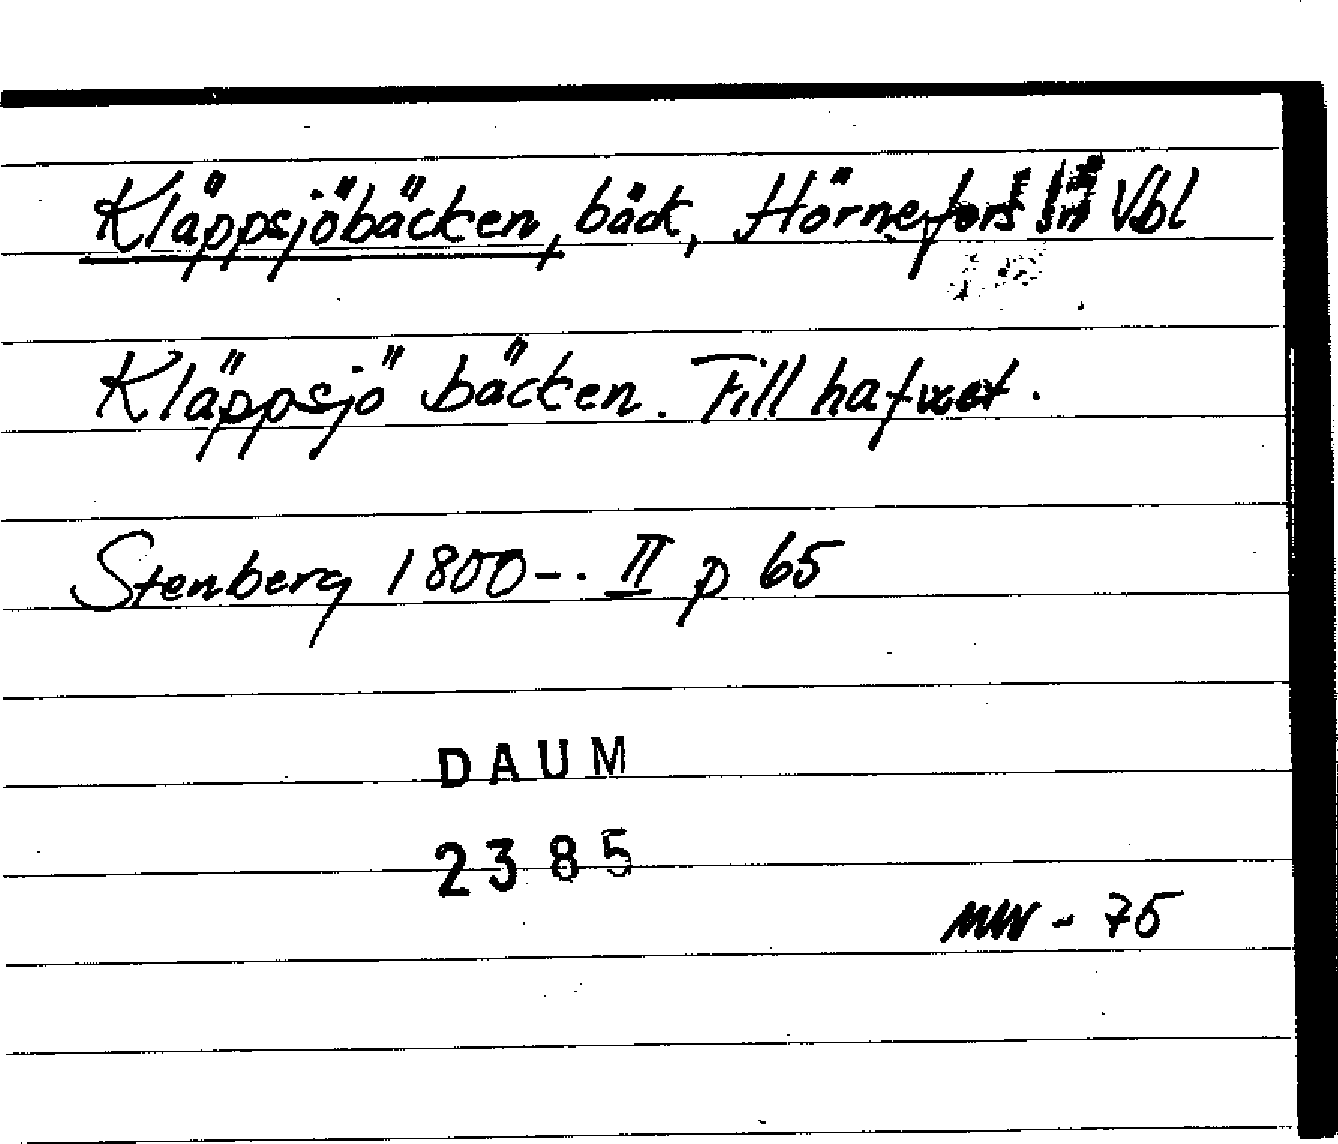 Kläppsjöbäcken, bäck, Hörnefors sn Vbl
Kläppsjö bäcken. Till hafvet.
Stenberg 1800-. II p 65
DAUM
2385
MW - 75